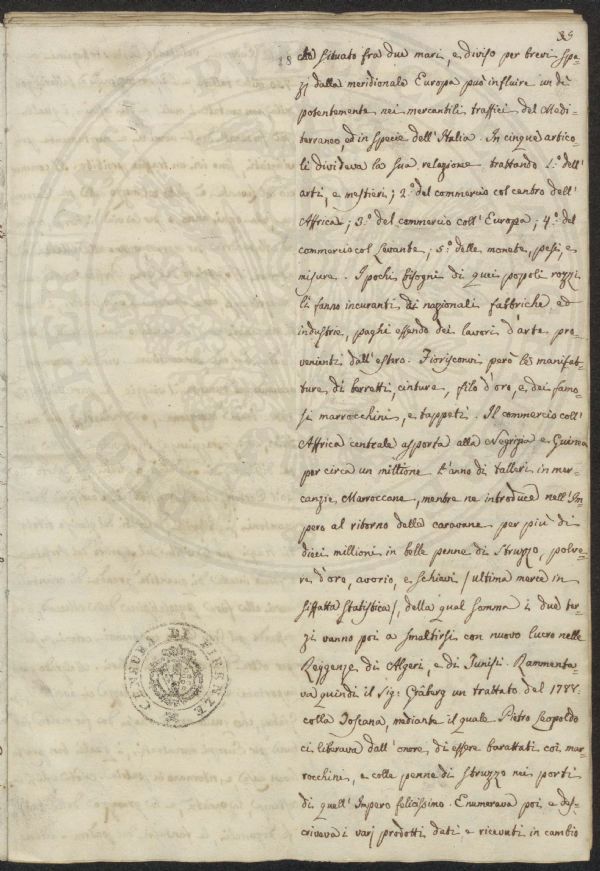 39
18 che situato fra due mari, e diviso per brevi spa-
zj dalla meridionale Europa può influire un dì
potentemente nei mercantili traffici del Medi-
terraneo, ed in specie dell' Italia. In cinque artico-
li divideva la sua relazione trattando 1.° dell'
arti, e mestieri; 2.° del commercio col centro dell'
Affrica; 3.° del commercio coll' Europa; 4.° del
commercio col Levante; 5.° delle monete, pesi, e
misure. I pochi bisogni di quei popoli rozzi
li fanno incuranti di nazionali fabbriche ed
industrie, paghi essendo dei lavori d'arte pro-
venienti dall'estero. Fiorisconvi però le manifat-
ture di berretti, cinture, filo d'oro, e dei famo-
si marrocchini, e tappeti. Il commercio coll'
Affrica centrale asporta alla Negrizia e Guinea
per circa un millione l'anno di talleri in mer-
canzie Marroccane, mentre ne introduce nell' Im-
pero al ritorno delle caravane per più di
dieci millioni in belle penne di Struzzo, polve-
re d'oro, avorio, e schiavi /ultima merce in
siffatta statistica/, della qual somma i due ter-
zi vanno poi a smaltirsi con nuovo lucro nelle
Reggenze di Algeri, e di Tunisi. Rammenta-
va quindi il Sig: Gräberg un trattato del 1777.
colla Toscana, mediante il quale Pietro Leopoldo
ci liberava dall' onore di essere barattati coi mar-
rocchini, e colle penne di struzzo nei porti
di quell' Impero felicissimo. Enumerava poi e des-
criveva i varj prodotti dati e ricevuti in cambio
CENSURA DI FIRENZE